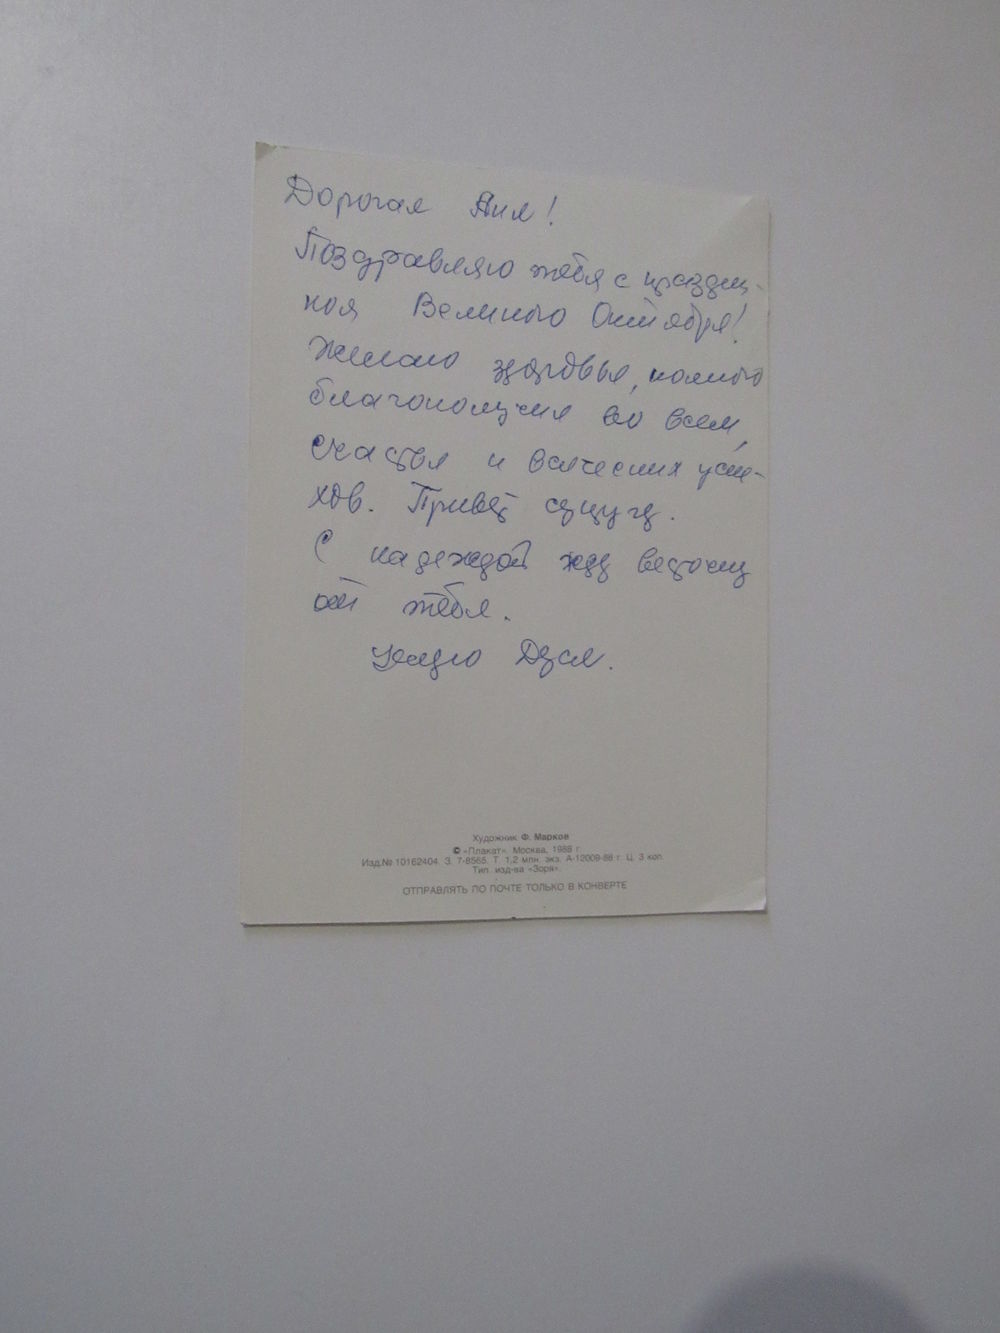 Дорогая Аня!
Поздравляю тебя с праздни-
ком Великого Октября!
Желаю здоровья, полного
благополучия во всем,
счастья и всяческих успе-
хов. Привет супругу.
С надеждой жду весточку
от тебя.
Целую Дуся.
Художник Ф. Марков
© «Плакат». Москва, 1988 г.
Изд.№ 10162404. З. 7-8565. Т. 1,2 млн. экз. А-12009-88 г. Ц. 3 коп.
Тип. изд-ва «Зоря».
ОТПРАВЛЯТЬ ПО ПОЧТЕ ТОЛЬКО В КОНВЕРТЕ